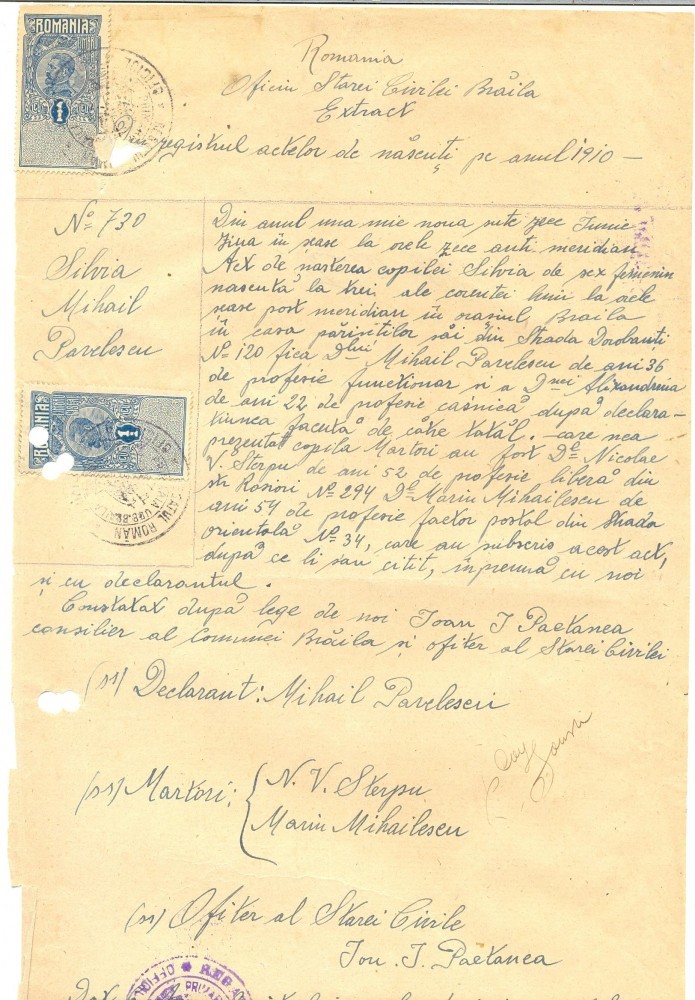 ROMANIA
Romania
Oficiu Starei Civilei Brăila
Extract
registrul actelor de născuți pe anul 1910 –
No 730
Silvia
Mihail
Pavelescu
Din anul una mie noua sute zece Iunie
ziua în șease la orele zece anti meridian
Act de nașterea copilei Silvia de sex feminin
nascută la trei ale corentei luni la orele
șease post meridian în orașiul Braila
în casa părinților săi din Strada Dorobanti
No 120 fica Dlui Mihail Pavelescu de ani 36
de profesie functionar si a Dnei Alixandrina
de ani 22 de profesie casnică după declara-
tiunea facută de către tatăl. – care nea
prezentat copila Martori au fost Dl Nicolae
V. Sterpu de ani 52 de profesie liberă din
str Rosiori No 294 Dl Marin Mihailescu de
ani 54 de profesie factor postal din strada
orientală No 34, care au subscris acest act,
după ce li sau citit, inpreună cu noi
și cu declarantul.
Constatat după lege de noi Ioan I Paetanea
consilier al Comunei Brăila și ofiter al Starei Civilei
(ss) Declarant: Mihail Pavelescu
ROMANIA
(ss) Martori: N. V. Sterpu
Marin Mihailescu
(ss) Ofiter al Starei Civile
Ion. I. Paetanea